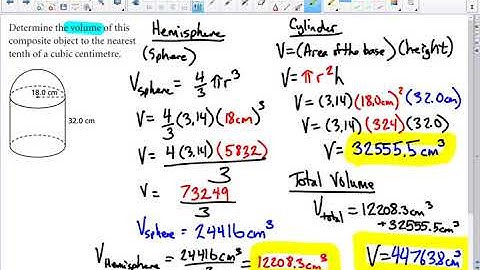 Determine the volume of this
composite object to the nearest
tenth of a cubic centimetre.
18.0 cm
32.0 cm
Hemisphere
(Sphere)
Vsphere = 4/3 πr³
V = 4/3 (3.14)(18cm)³
V = 4(3.14)(5832)/3
V = 73249/3
Vsphere = 24416cm³
VHemisphere = 24416cm³/2 = 12208.3cm³
Cylinder
V=(Area of the base)(height)
V=πr²h
V=(3.14)(18.0cm)²(32.0cm)
V=(3.14)(324)(32.0)
V= 32555.5cm³
Total Volume
Vtotal = 12208.3cm³
+32555.5cm³
V=44763.8cm³